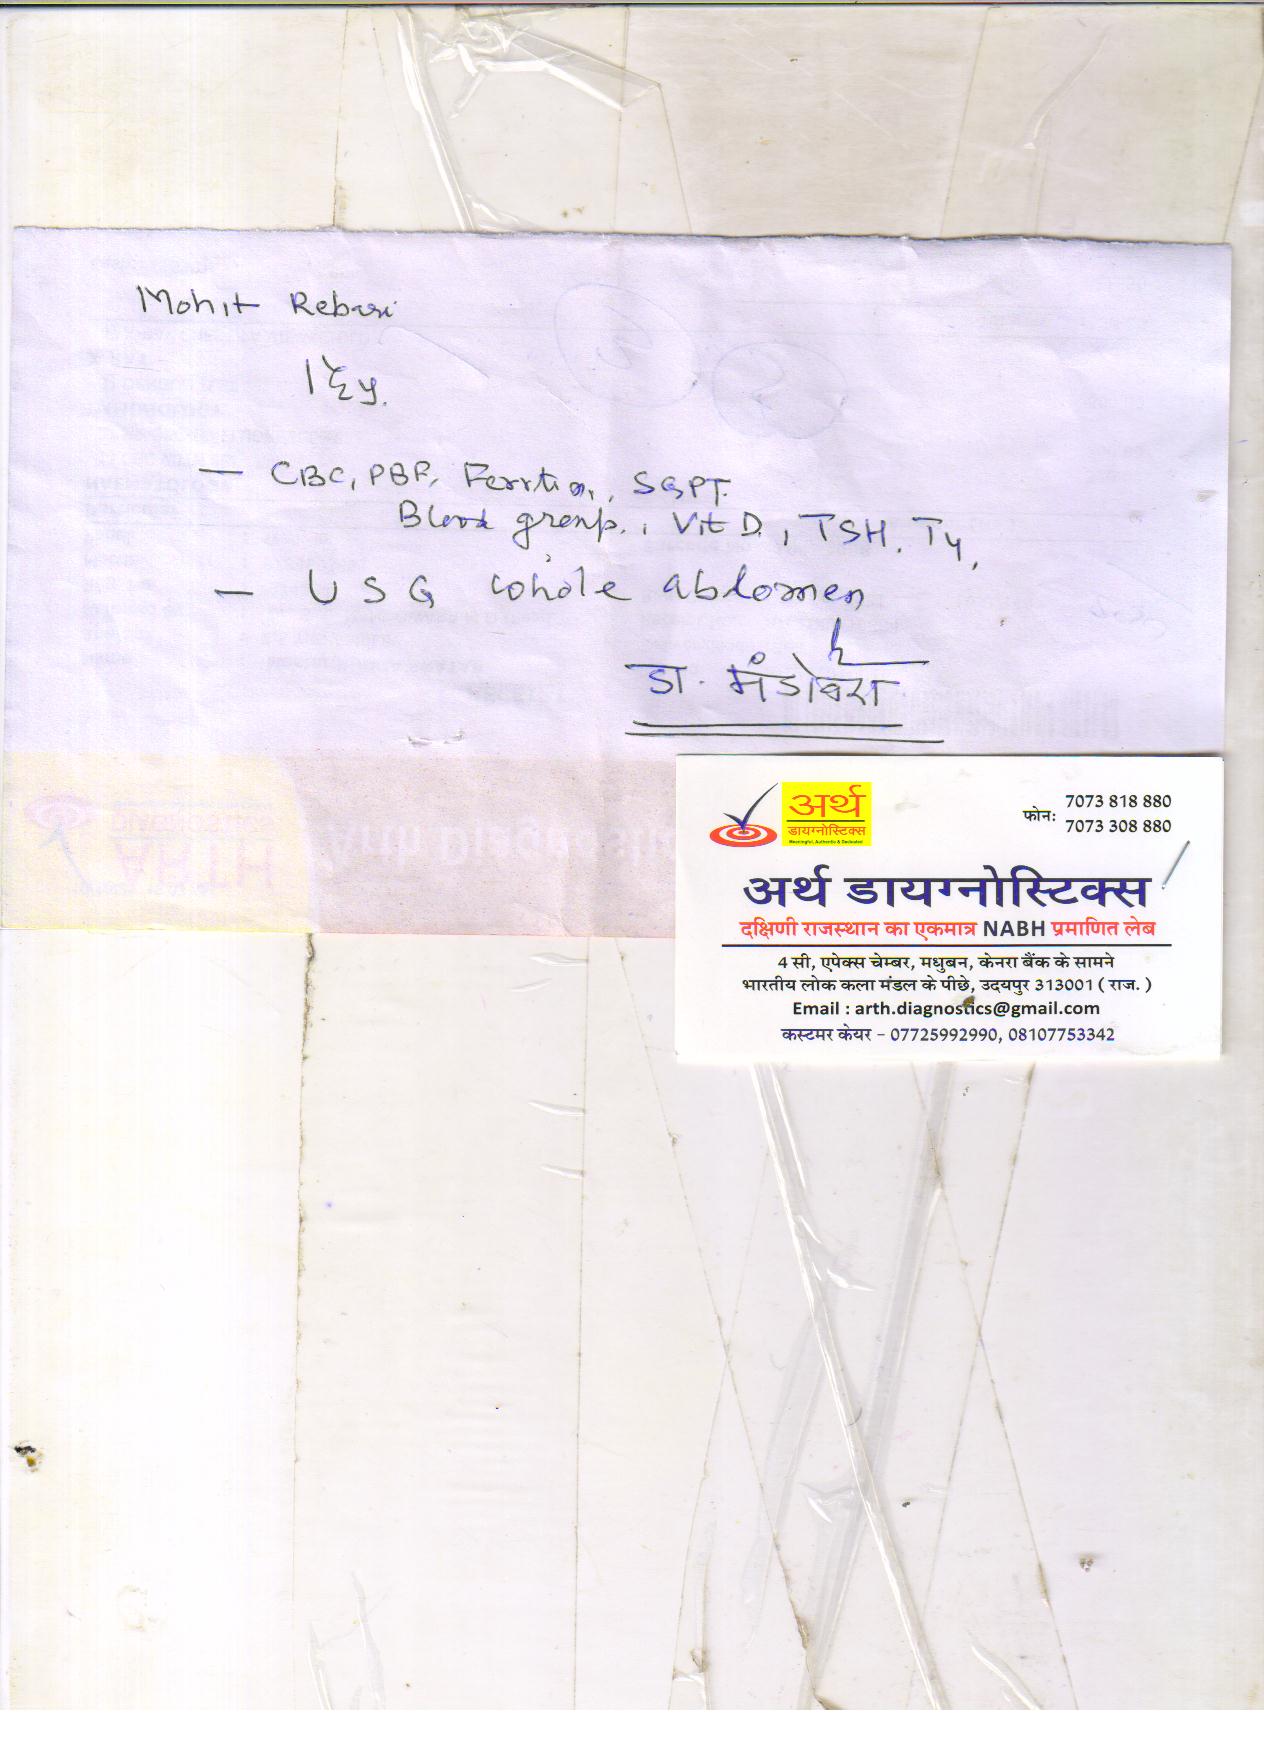 Mohit Rebari
1½y.
— CBC, PBF, Ferrtin, SGPT.
Blood group., Vit D, TSH. T4,
— USG whole abdomen
डा. मंडोवरा
अर्थ
डायग्नोस्टिक्स
Meaningful, Authentic & Dedicated
फोन: 7073 818 880
7073 308 880
अर्थ डायग्नोस्टिक्स
दक्षिणी राजस्थान का एकमात्र NABH प्रमाणित लेब
4 सी, एपेक्स चेम्बर, मधुबन, केनरा बैंक के सामने
भारतीय लोक कला मंडल के पीछे, उदयपुर 313001 ( राज. )
Email : arth.diagnostics@gmail.com
कस्टमर केयर - 07725992990, 08107753342